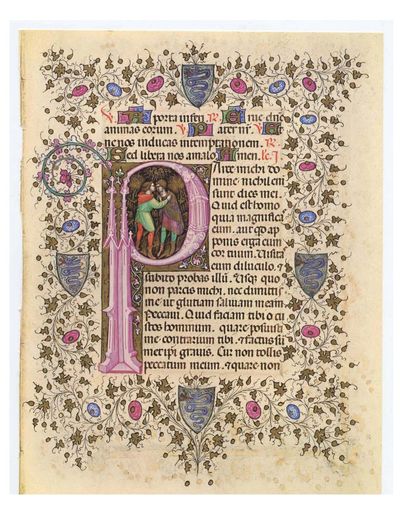 V A porta inferi. R Erue dñe
animas eorum. V Pater nr̃. V Et
ne nos inducas intemptationem. R
Sed libera nos amalo. Amen. lc. j.
Parce michi do
mine nichil eni
sunt dies mei.
Quid est homo
quia magnifica
eum. aut qd ap
ponis erga eum
cor tuum. Uisita
eum diluculo. et
subito probas illũ. Usqꝫ quo
non parcis michi. nec dimitti
me ut glutiam saliuam meam
Peccaui. Quid faciam tibi o cu
stos hominum. quare posuisti
me contrarium tibi. et factus sũ
michi ip̃i grauis. Cur non tollis
peccatum meum. et quare non